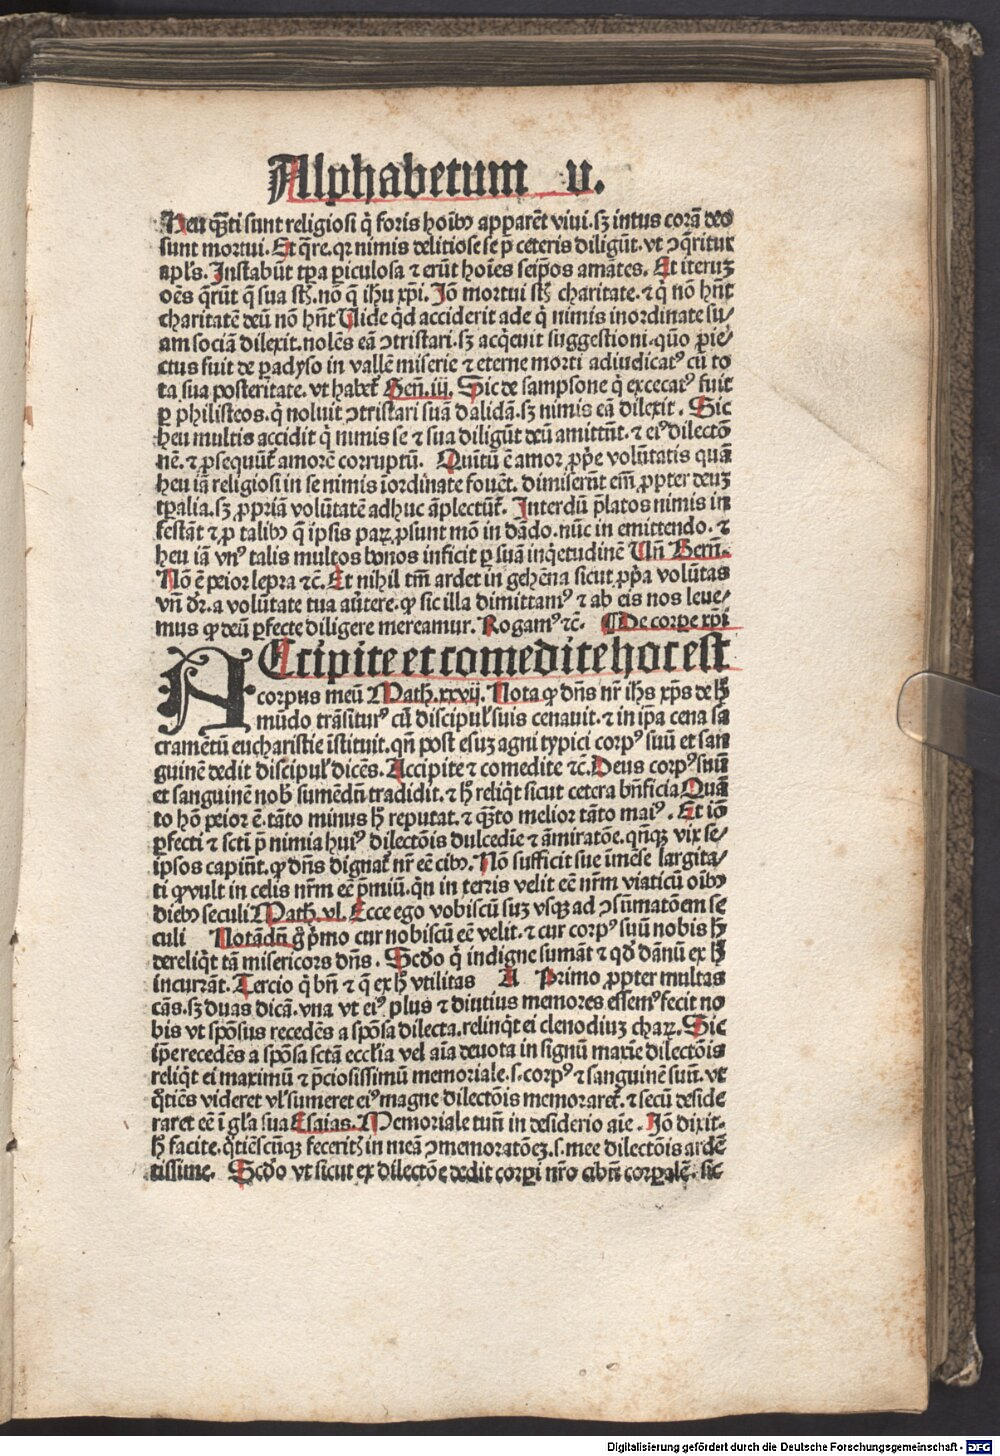 Alphabetum v.
Heu q̃ti sunt religiosi q̇ foris hoĩbꝰ apparẽt viui. sꝫ intus corã deo
sunt mortui. Et q̃re. qꝛ nimis delitiose se p̃ ceteris diligũt. vt ꝯq̃ritur
apl's. Instabũt tp̃a ꝑiculosa ⁊ erũt hoĩes seip̃os amãtes. Et iteruꝫ
oẽs q̃rũt q̃ sua st̃. nõ q̃ ih̃u xp̃i. Iõ mortui st̃ charitate. ⁊ q̇ nõ hñt
charitatẽ deũ nõ hñt Vide qḋ acciderit ade q̇ nimis inordinate su/
am sociã dilexit. nolẽs eã ꝯtristari. sꝫ acq̇euit suggestioni. quo ꝓie/
ctus fuit de ꝑadyso in vallẽ miserie ⁊ eterne morti adiudicatꝰ cũ to
ta sua posteritate. vt habet᷑ Geñ. iij. Sic de sampsone q̇ excecatꝰ fuit
ꝑ philisteos. q̇ noluit ꝯtristari suã dalidã. sꝫ nimis eã dilexit. Sic
heu multis accidit q̇ nimis se ⁊ sua diligũt deũ amittũt. ⁊ eiꝰ dilectõ
nẽ. ⁊ ꝑsequũt᷑ amorẽ corruptũ. Quintũ ẽ amor ꝓp̃e volũtatis quã
heu iã religiosi in se nimis ĩordinate fouẽt. dimiserũt em̃ ꝓpter deuꝫ
tp̃alia. sꝫ ꝓpriã volũtatẽ adhuc ãplectũt᷑. Interdũ p̃latos nimis in
festãt ⁊ ꝓ talibꝰ q̃ ipsis paꝝ ꝓsunt mõ in dãdo. nũc in emittendo. ⁊
heu iã vnꝰ talis multos bonos inficit ꝑ suã inq̇etudinẽ Vñ Berñ.
Nõ ẽ peior lepra ⁊c̃. Et nihil tm̃ ardet in gehẽna sicut ꝓp̃a volũtas
vñ dr̃. a volũtate tua auertere. ꝙ sic illa dimittamꝰ ⁊ ab eis nos leue/
mus ꝙ deũ ꝑfecte diligere mereamur. Rogamꝰ ⁊c̃. De corpe xp̃i
ACcipite et comedite hoc est
corpus meũ Math. xxvij. Nota ꝙ dñs nr̃ ih̃s xp̃s de h̃
mũdo trãsiturꝰ cũ discipul' suis cenauit. ⁊ in ip̃a cena sa
cramẽtũ eucharistie ĩstituit. qñ post esuꝫ agni typici corpꝰ suũ et san
guinẽ dedit discipul' dicẽs. Accipite ⁊ comedite ⁊c̃. Deus corpꝰ suũ
et sanguinẽ nob̃ sumẽdũ tradidit. ⁊ h̃ reliq̇t sicut cetera bñficia Quã
to hõ peior ẽ. tãto minus h̃ reputat. ⁊ q̃to melior tãto maiꝰ. Et iõ
ꝑfecti ⁊ scti p̃ nimia huiꝰ dilectõis dulcedĩe ⁊ ãmiratõe. qñqꝫ vix se/
ip̃sos capiũt. ꝙ dñs dignat᷑ nr̃ eẽ cibꝰ. Nõ sufficit sue ĩmẽse largita/
ti ꝙ vult in celis nr̃m eẽ p̃miũ. qin in terris velit eẽ nr̃m viaticũ oĩbꝰ
diebꝰ seculi Math. vl. Ecce ego vobiscũ suꝫ vsqꝫ ad ꝯsũmatõem se
culi Notãdũ g̊ p̃mo cur nobiscũ eẽ velit. ⁊ cur corpꝰ suũ nobis h̃
dereliq̇t tã misericors dñs. Scḋo q̇ indigne sumãt ⁊ qḋ dãnũ ex h̃
incurrãt. Tercio q̇ bñ ⁊ q̃ ex h̃ vtilitas A Primo ꝓpter multas
cãs. sꝫ duas dicã. vna vt eiꝰ plus ⁊ diutius memores essemꝰ fecit no
bis vt spõsus recedẽs a spõsa dilecta. relinq̇t ei clenodiuꝫ chaꝝ. Sic
ip̃e recedẽs a spõsa sctã eccl'ia vel aĩa deuota in signũ maxĩe dilectõis
reliq̇t ei maximũ ⁊ p̃ciosissimũ memoriale. s. corpꝰ ⁊ sanguinẽ suũ. vt
q̊tiẽs videret vl' sumeret eiꝰ magne dilectõis memoraret᷑. ⁊ secũ deside
raret eẽ ĩ gl'a sua Esaias. Memoriale tuũ in desiderio aĩe. Iõ dixit.
h̃ facite. q̊tiẽscũqꝫ feceritꝭ in meã ꝯmemoratõeꝫ. s. mee dilectõis ardẽ
tissime. Scḋo vt sicut ex dilectõe dedit corpi nr̃o cibũ corꝑalẽ. sic
Digitalisierung gefördert durch die Deutsche Forschungsgemeinschaft - DFG